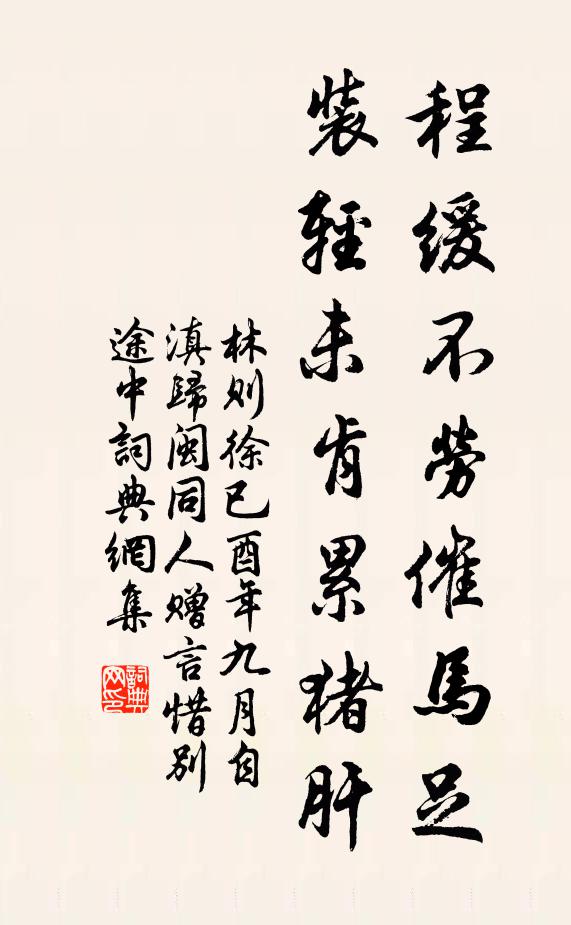 程緩不勞催馬足
裝輕未肯累豬肝
林則徐已酉年九月自
滇歸閩同人贈言惜別
途中詞典網集
詞典
网印